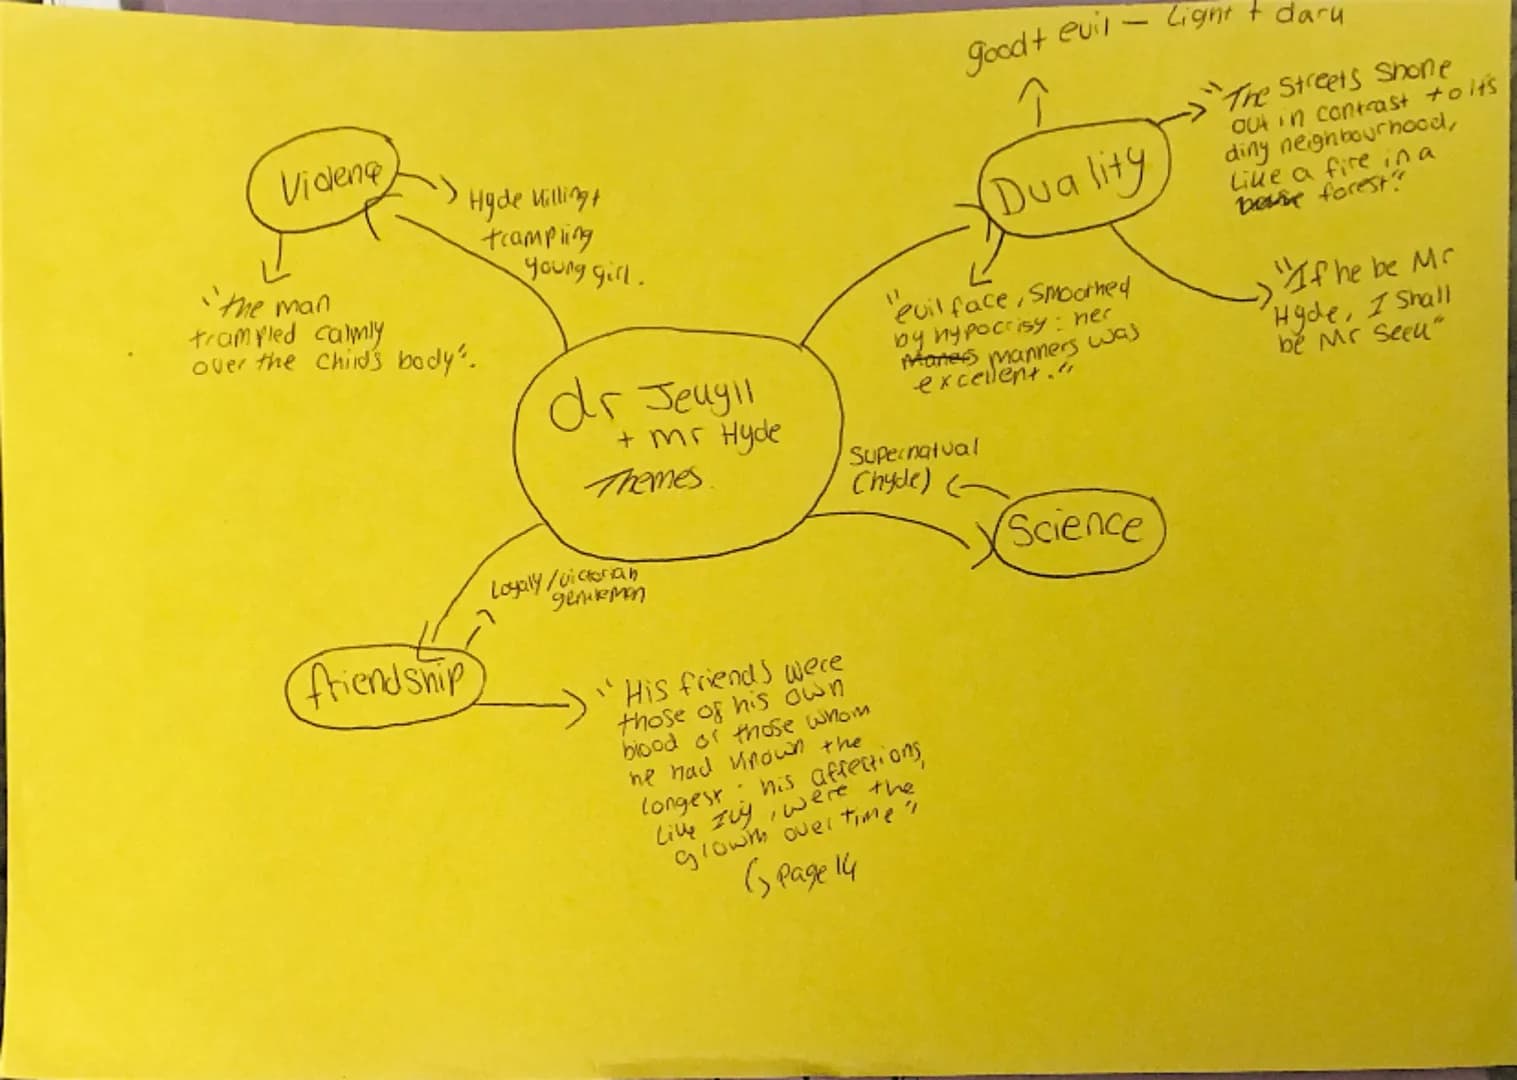 dr Jekyll
+ mr Hyde
Themes.
Violence
Hyde killing +
trampling
young girl.
"the man
trampled calmly
over the child's body".
Duality
good + evil - Light + dark
"The Streets Shone
out in contrast to it's
diny neighbourhood,
Like a fire in a
forest."
"If he be Mr
Hyde, I Shall
be Mr Seek"
"evil face, Smoothed
by hypocrisy: her
Maners manners was
excellent."
Science
Supernatual
(hyde)
friendship
Loyally/victorian
gentleman
"His friends were
those of his own
blood or those whom
he had known the
longest: his affections,
Like Ivy, were the
growth over time"
Page 14